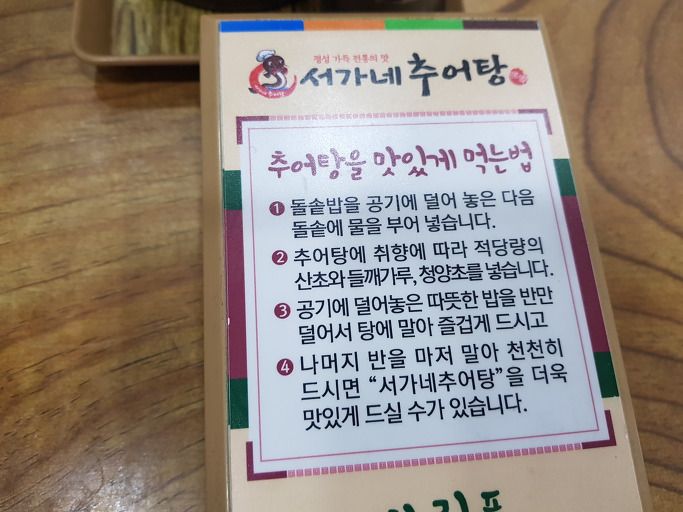 정성 가득 전통의 맛
서가네 추어탕
추어탕을 맛있게 먹는법
1 돌솥밥을 공기에 덜어 놓은 다음
돌솥에 물을 부어 넣습니다.
2 추어탕에 취향에 따라 적당량의
산초와 들깨가루, 청양초를 넣습니다.
3 공기에 덜어놓은 따뜻한 밥을 반만
덜어서 탕에 말아 즐겁게 드시고
4 나머지 반을 마저 말아 천천히
드시면 “서가네추어탕”을 더욱
맛있게 드실 수가 있습니다.